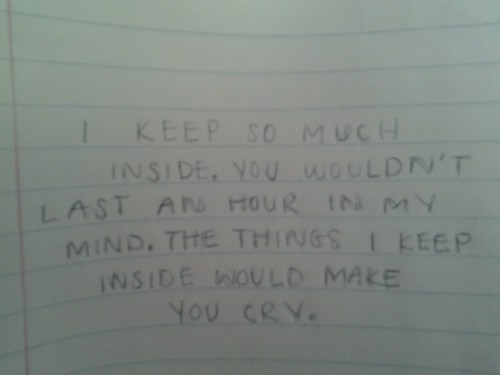 I KEEP SO MUCH
INSIDE. YOU WOULDN'T
LAST AN HOUR IN MY
MIND. THE THINGS I KEEP
INSIDE WOULD MAKE
YOU CRY.